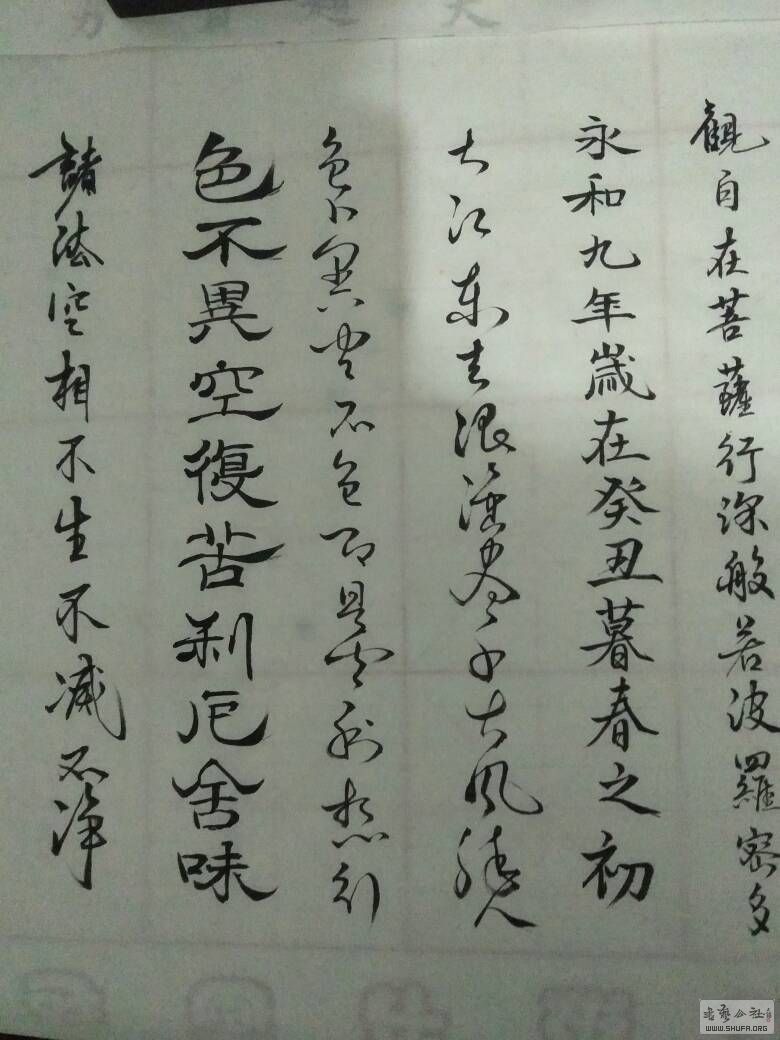 觀自在菩薩行深般若波羅密多
永和九年歲在癸丑暮春之初
大江东去浪淘尽千古风流人
色不異空不色即是空利想幻
色不異空復苦利厄舍味
諸法空相不生不减不净
書藝公社
WWW.SHUFA.ORG